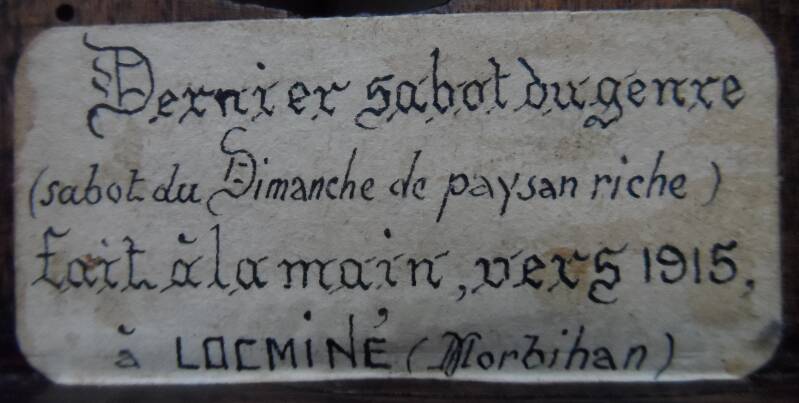 Dernier sabot du genre
(sabot du Dimanche de paysan riche)
fait à la main, vers 1915,
à LOCMINÉ (Morbihan)